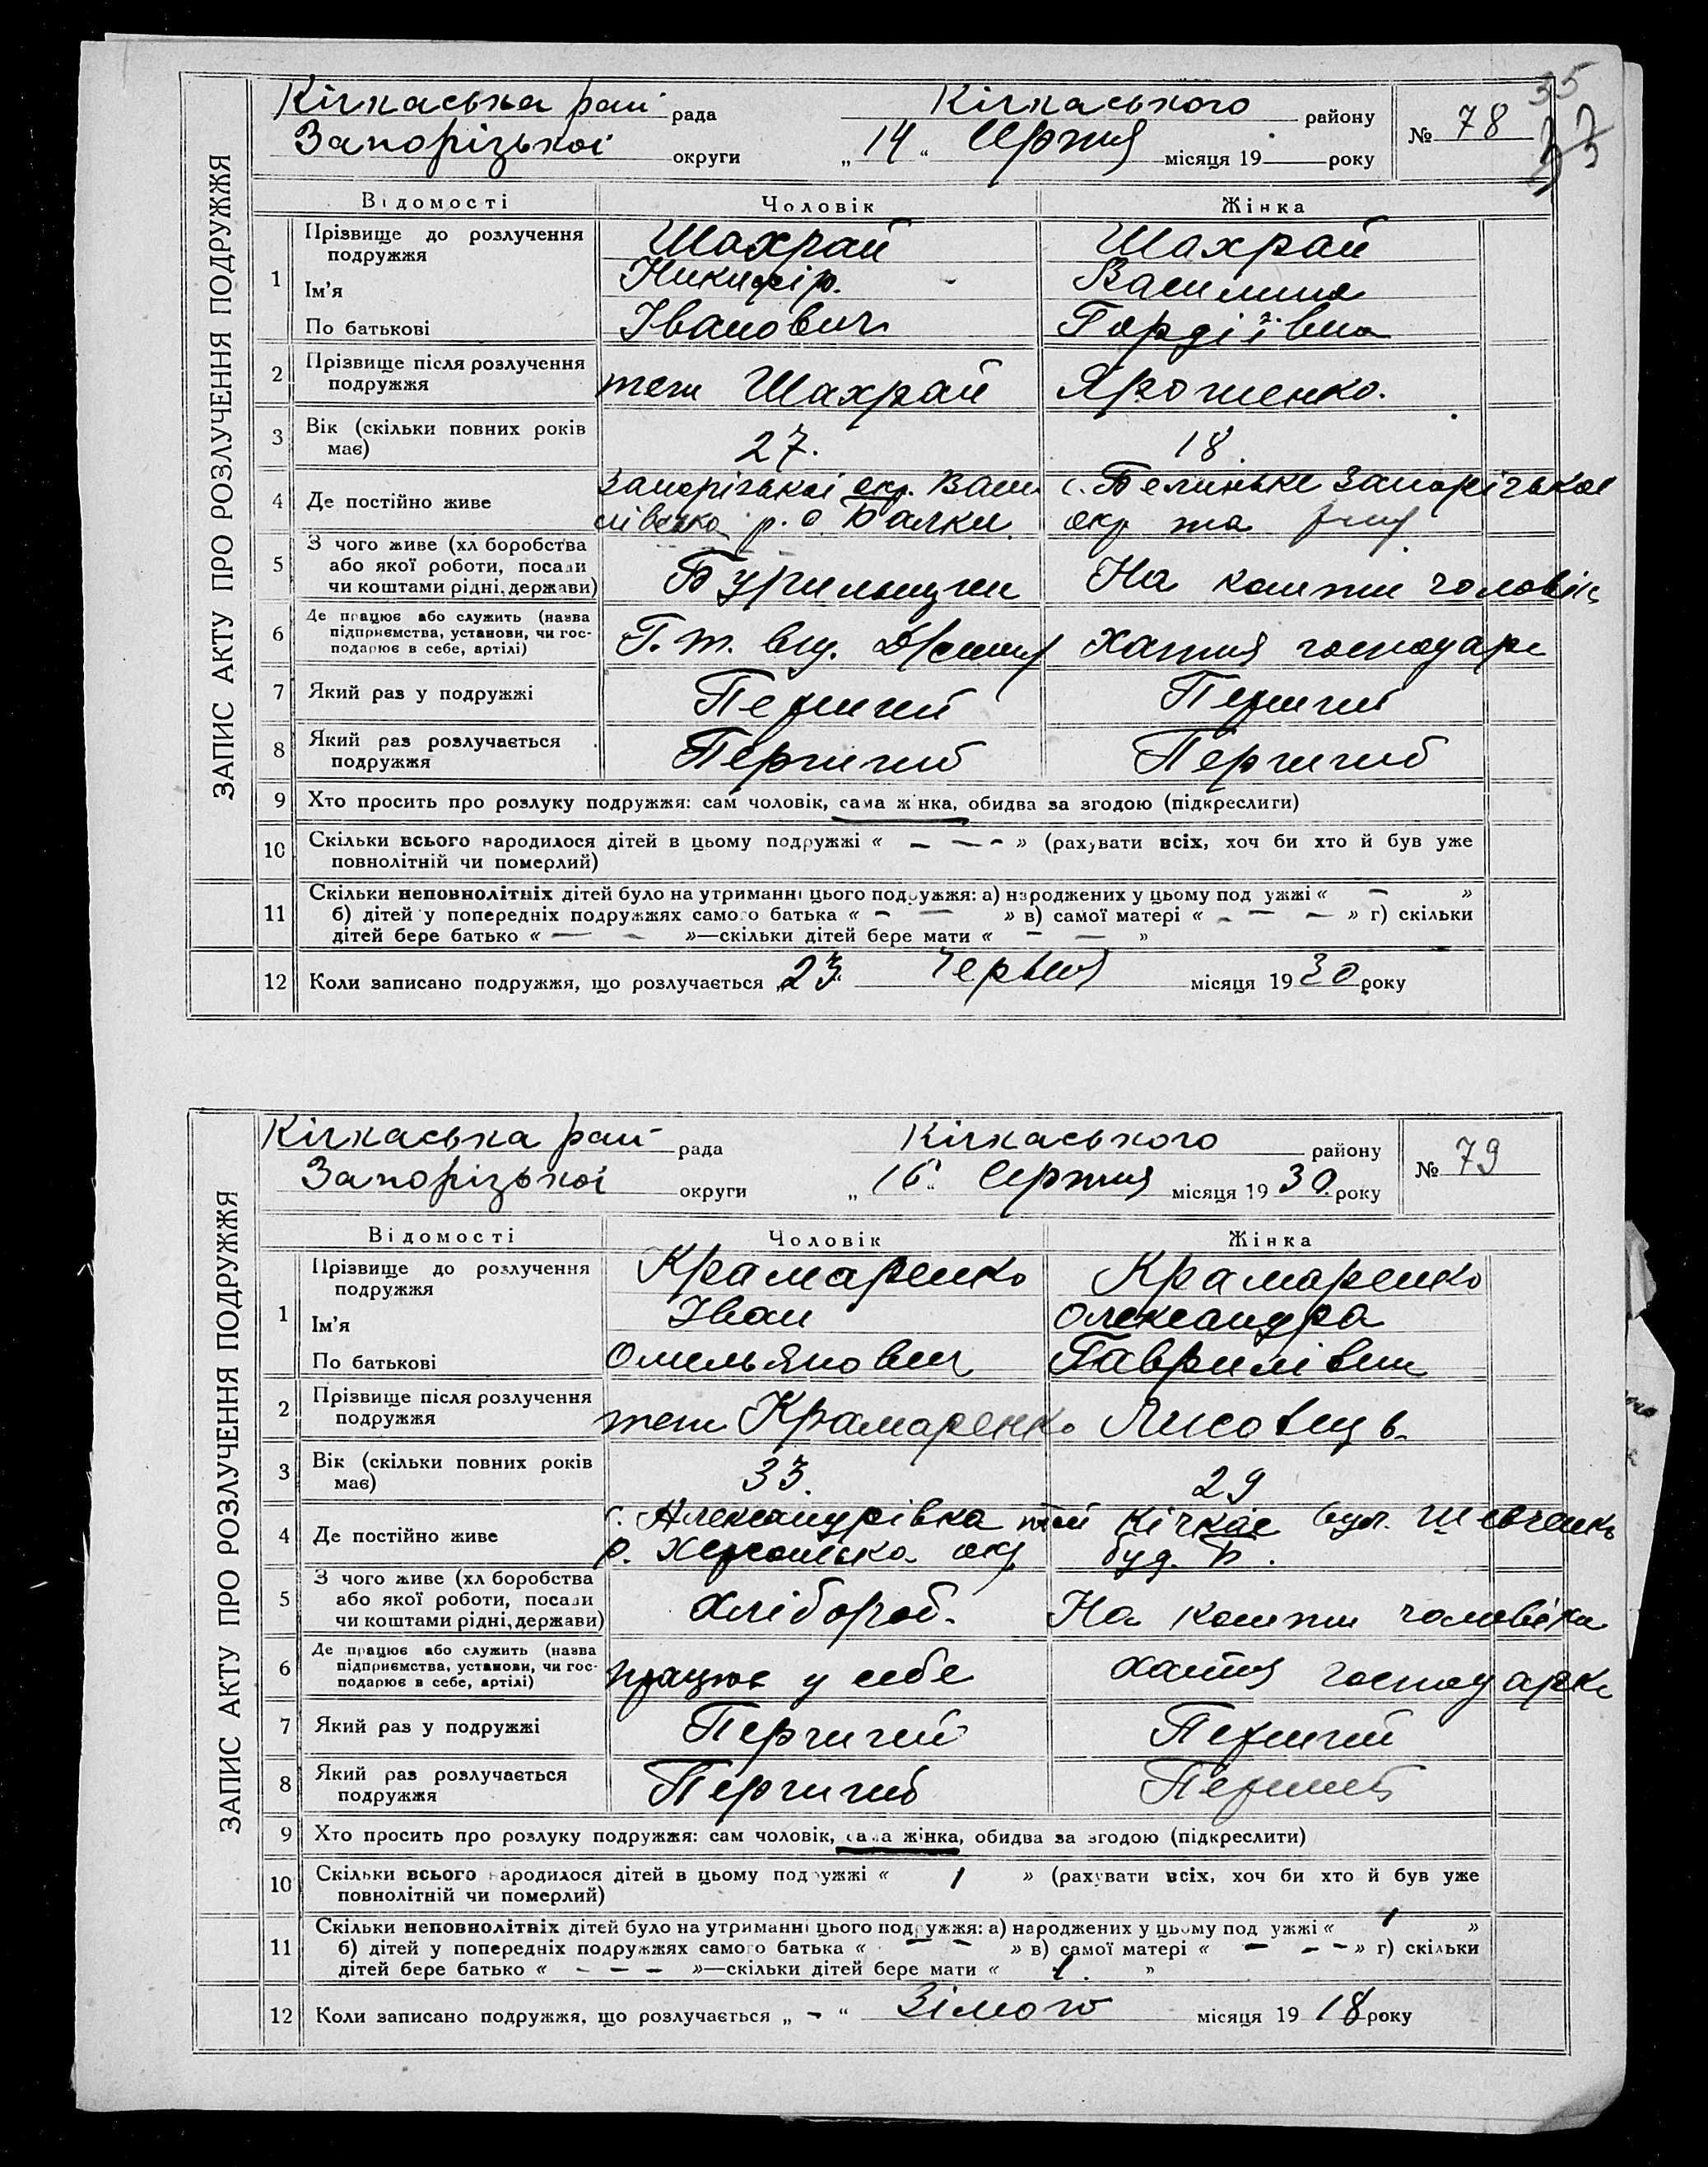 35
ЗАПИС АКТУ ПРО РОЗЛУЧЕННЯ ПОДРУЖЖЯ
Кічкаська рай рада Кічкаського району № 78
Запорізької округи „14“ Серпня місяця 19 року
Відомості Чоловік Жінка
1 Прізвище до розлучення подружжя Шахрай Шахрай
Ім'я Никифір. Василина
По батькові Іванович Гордіївна
2 Прізвище після розлучення подружжя теж Шахрай Ярошенко.
3 Вік (скільки повних років має) 27. 18.
4 Де постійно живе Запорізької окр. Васи с. Беленьке Запорізької
лівсько р. с Балки. окр та
5 З чого живе (хліборобства або якої роботи, посади чи коштами рідні, держави) Бурильщик На кошти чоловік
6 Де працює або служить (назва підприємства, установи, чи господарює в себе, артілі) Г.т. від. Хатня господарк
7 Який раз у подружжі Перший Перший
8 Який раз розлучається подружжя Перший Перший
9 Хто просить про розлуку подружжя: сам чоловік, сама жінка, обидва за згодою (підкреслити)
10 Скільки всього народилося дітей в цьому подружжі « — — - » (рахувати всіх, хоч би хто й був уже
повнолітній чи померлий)
11 Скільки неповнолітніх дітей було на утриманні цього подружжя: а) народжених у цьому подружжі « — »
б) дітей у попередніх подружжях самого батька « — — » в) самої матері « — — — » г) скільки
дітей бере батько « — — »—скільки дітей бере мати « — — »
12 Коли записано подружжя, що розлучається „23“ Червня місяця 1930 року
ЗАПИС АКТУ ПРО РОЗЛУЧЕННЯ ПОДРУЖЖЯ
Кічкаська рай рада Кічкаського району № 79
Запорізької округи „16“ Серпня місяця 1930 року
Відомості Чоловік Жінка
1 Прізвище до розлучення подружжя Крамаренко Крамаренко
Ім'я Іван Олександра
По батькові Омельянович Гаврилівна
2 Прізвище після розлучення подружжя теж Крамаренко Лисовець
3 Вік (скільки повних років має) 33. 29
4 Де постійно живе с. Александрівка той Кічкас вул. Шевченко
р. Херсонсько окр буд. Б.
5 З чого живе (хліборобства або якої роботи, посади чи коштами рідні, держави) Хлібороб. На кошти чоловіка
6 Де працює або служить (назва підприємства, установи, чи господарює в себе, артілі) працює у себе хатня господарк
7 Який раз у подружжі Перший Перший
8 Який раз розлучається подружжя Перший Перший
9 Хто просить про розлуку подружжя: сам чоловік, сама жінка, обидва за згодою (підкреслити)
10 Скільки всього народилося дітей в цьому подружжі « 1 » (рахувати всіх, хоч би хто й був уже
повнолітній чи померлий)
11 Скільки неповнолітніх дітей було на утриманні цього подружжя: а) народжених у цьому подружжі « 1 »
б) дітей у попередніх подружжях самого батька « — — » в) самої матері « — - - » г) скільки
дітей бере батько « - - — »—скільки дітей бере мати « 1. »
12 Коли записано подружжя, що розлучається „ - “ Зімою місяця 1918 року